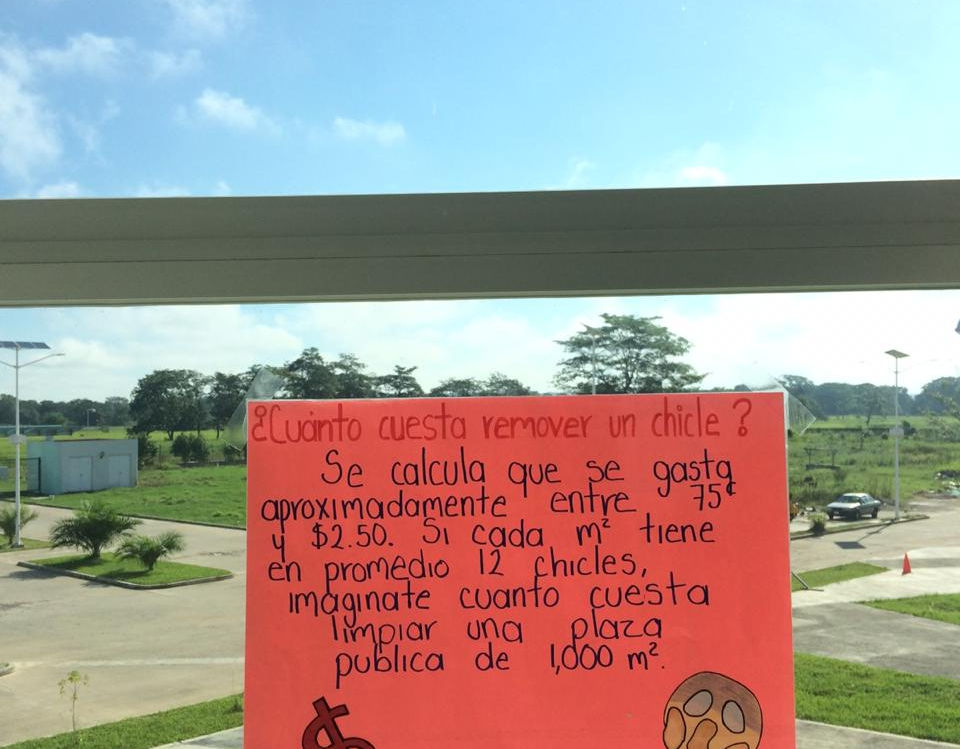 ¿Cuánto cuesta remover un chicle?
Se calcula que se gasta
aproximadamente entre 75¢
y $2.50. Si cada m² tiene
en promedio 12 chicles,
imáginate cuanto cuesta
limpiar una plaza
publica de 1,000 m².
$